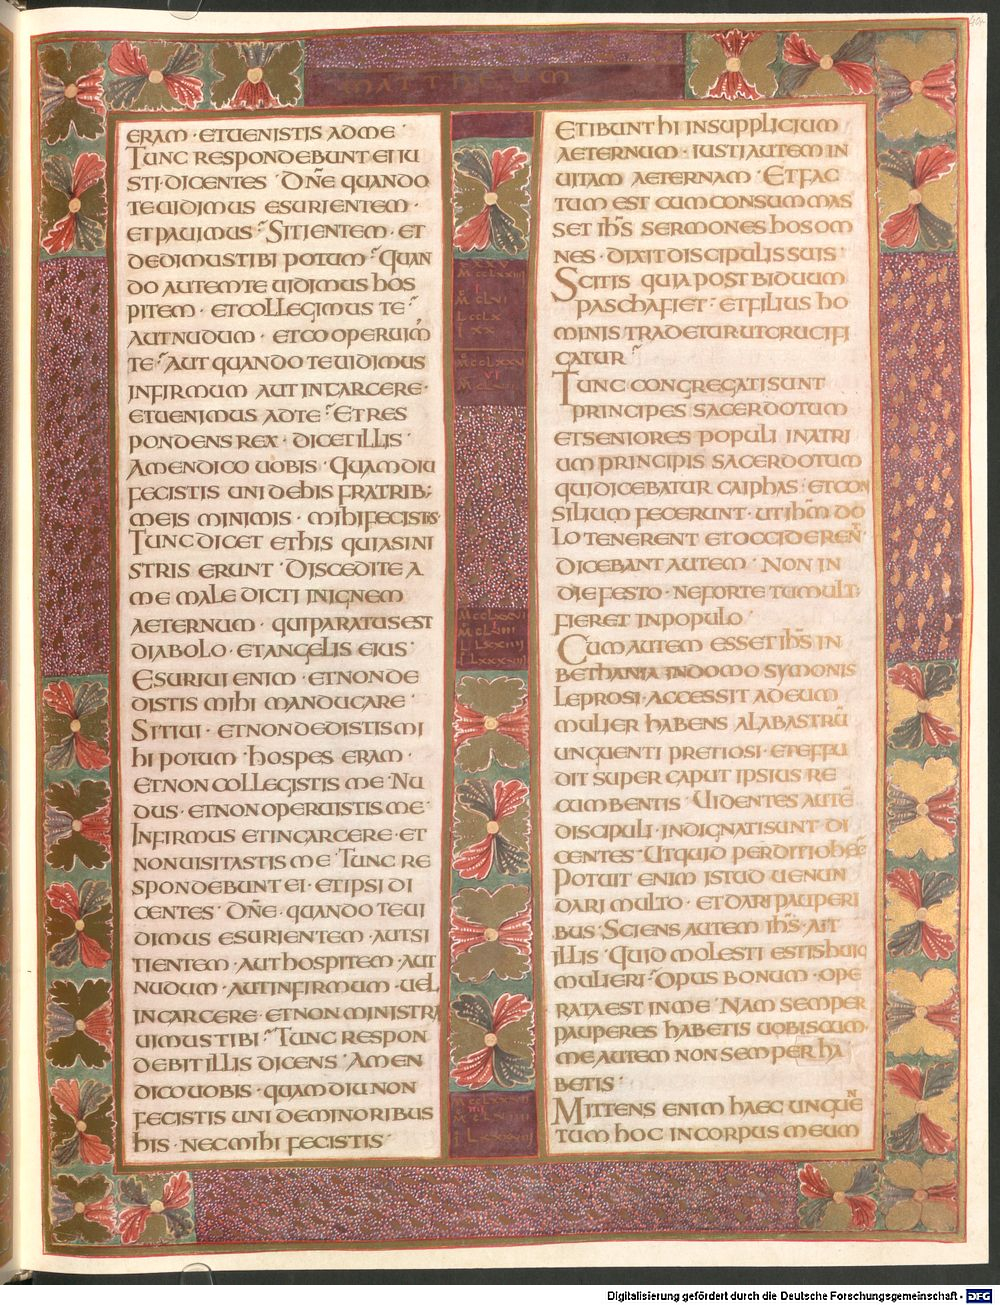 MATTHEUM
ERAM · ETUENISTIS ADME ·
TUNC RESPONDEBUNT EI IU
STI · DICENTES · DÑE QUANDO
TEUIDIMUS ESURIENTEM ·
ETPAUIMUS · SITIENTEM · ET
DEDIMUS TIBI POTUM · QUAN
DO AUTEM TE UIDIMUS HOS
PITEM · ETCOLLEGIMUS TE ·
AUTNUDUM · ETCOOPERUIM̄
TE · AUT QUANDO TEUIDIMUS
INFIRMUM AUT INCARCERE ·
ETUENIMUS ADTE · ETRES
PONDENS REX · DICETILLIS ·
AMENDICO UOBIS · QUAMDIU
FECISTIS UNI DEHIS FRATRIB;
MEIS MINIMIS · MIHI FECISTIS
TUNC DICET ETHIS QUIASINI
STRIS ERUNT · DISCEDITE A
ME MALE DICTI INIGNEM
AETERNUM · QUIPARATUSEST
DIABOLO · ETANGELIS EIUS ·
ESURIUI ENIM · ETNONDE
DISTIS MIHI MANDUCARE ·
SITIUI · ETNONDEDISTISMI
HI POTUM · HOSPES ERAM ·
ETNON COLLEGISTIS ME · NU
DUS · ETNON OPERUISTIS ME ·
INFIRMUS ETINCARCERE · ET
NONUISITASTIS ME · TUNC RE
SPONDEBUNT EI · ETIPSI DI
CENTES · DÑE · QUANDO TEUI
DIMUS ESURIENTEM · AUTSI
TIENTEM · AUTHOSPITEM · AUT
NUDUM · AUTINFIRMUM · UEL
INCARCERE · ETNON MINISTRA
UIMUS TIBI · TUNC RESPON
DEBIT ILLIS DICENS · AMEN
DICO UOBIS · QUAMDIU NON
FECISTIS UNI DEMINORIBUS
HIS · NEC MIHI FECISTIS ·
ETIBUNT HI INSUPPLICIUM
AETERNUM · IUSTI AUTEM IN
UITAM AETERNAM · ET FAC
TUM EST CUM CONSUMMAS
SET IHS̄ SERMONES HOS OM
NES · DIXIT DISCIPULIS SUIS ·
SCITIS QUIA POST BIDUUM
PASCHA FIET · ETFILIUS HO
MINIS TRADETUR UTCRUCIFI
GATUR ·
TUNC CONGREGATI SUNT
PRINCIPES SACERDOTUM
ETSENIORES POPULI INATRI
UM PRINCIPIS SACERDOTUM
QUIDICEBATUR CAIPHAS · ETCON
SILIUM FECERUNT · UTIHM̄ DO
LO TENERENT ETOCCIDEREN̄
DICEBANT AUTEM · NON IN
DIE FESTO · NEFORTE TUMULT;
FIERET INPOPULO ·
CUM AUTEM ESSET IHS̄ IN
BETHANIA INDOMO SYMONIS
LEPROSI · ACCESSIT ADEUM
MULIER HABENS ALABASTRŪ
UNGUENTI PRETIOSI · ETEFFU
DIT SUPER CAPUT IPSIUS RE
CUMBENTIS · UIDENTES AUTĒ
DISCIPULI · INDIGNATI SUNT DI
CENTES · UTQUID PERDITIO HEC
POTUIT ENIM ISTUD UENUN
DARI MULTO · ETDARI PAUPERI
BUS · SCIENS AUTEM IHS̄ · AIT
ILLIS · QUID MOLESTI ESTISHUIC
MULIERI · OPUS BONUM · OPE
RATA EST INME · NAM SEMPER
PAUPERES HABETIS UOBISCUM ·
ME AUTEM NON SEMPER HA
BETIS ·
MITTENS ENIM HAEC UNGUEN
TUM HOC INCORPUS MEUM
Digitalisierung gefördert durch die Deutsche Forschungsgemeinschaft - DFG